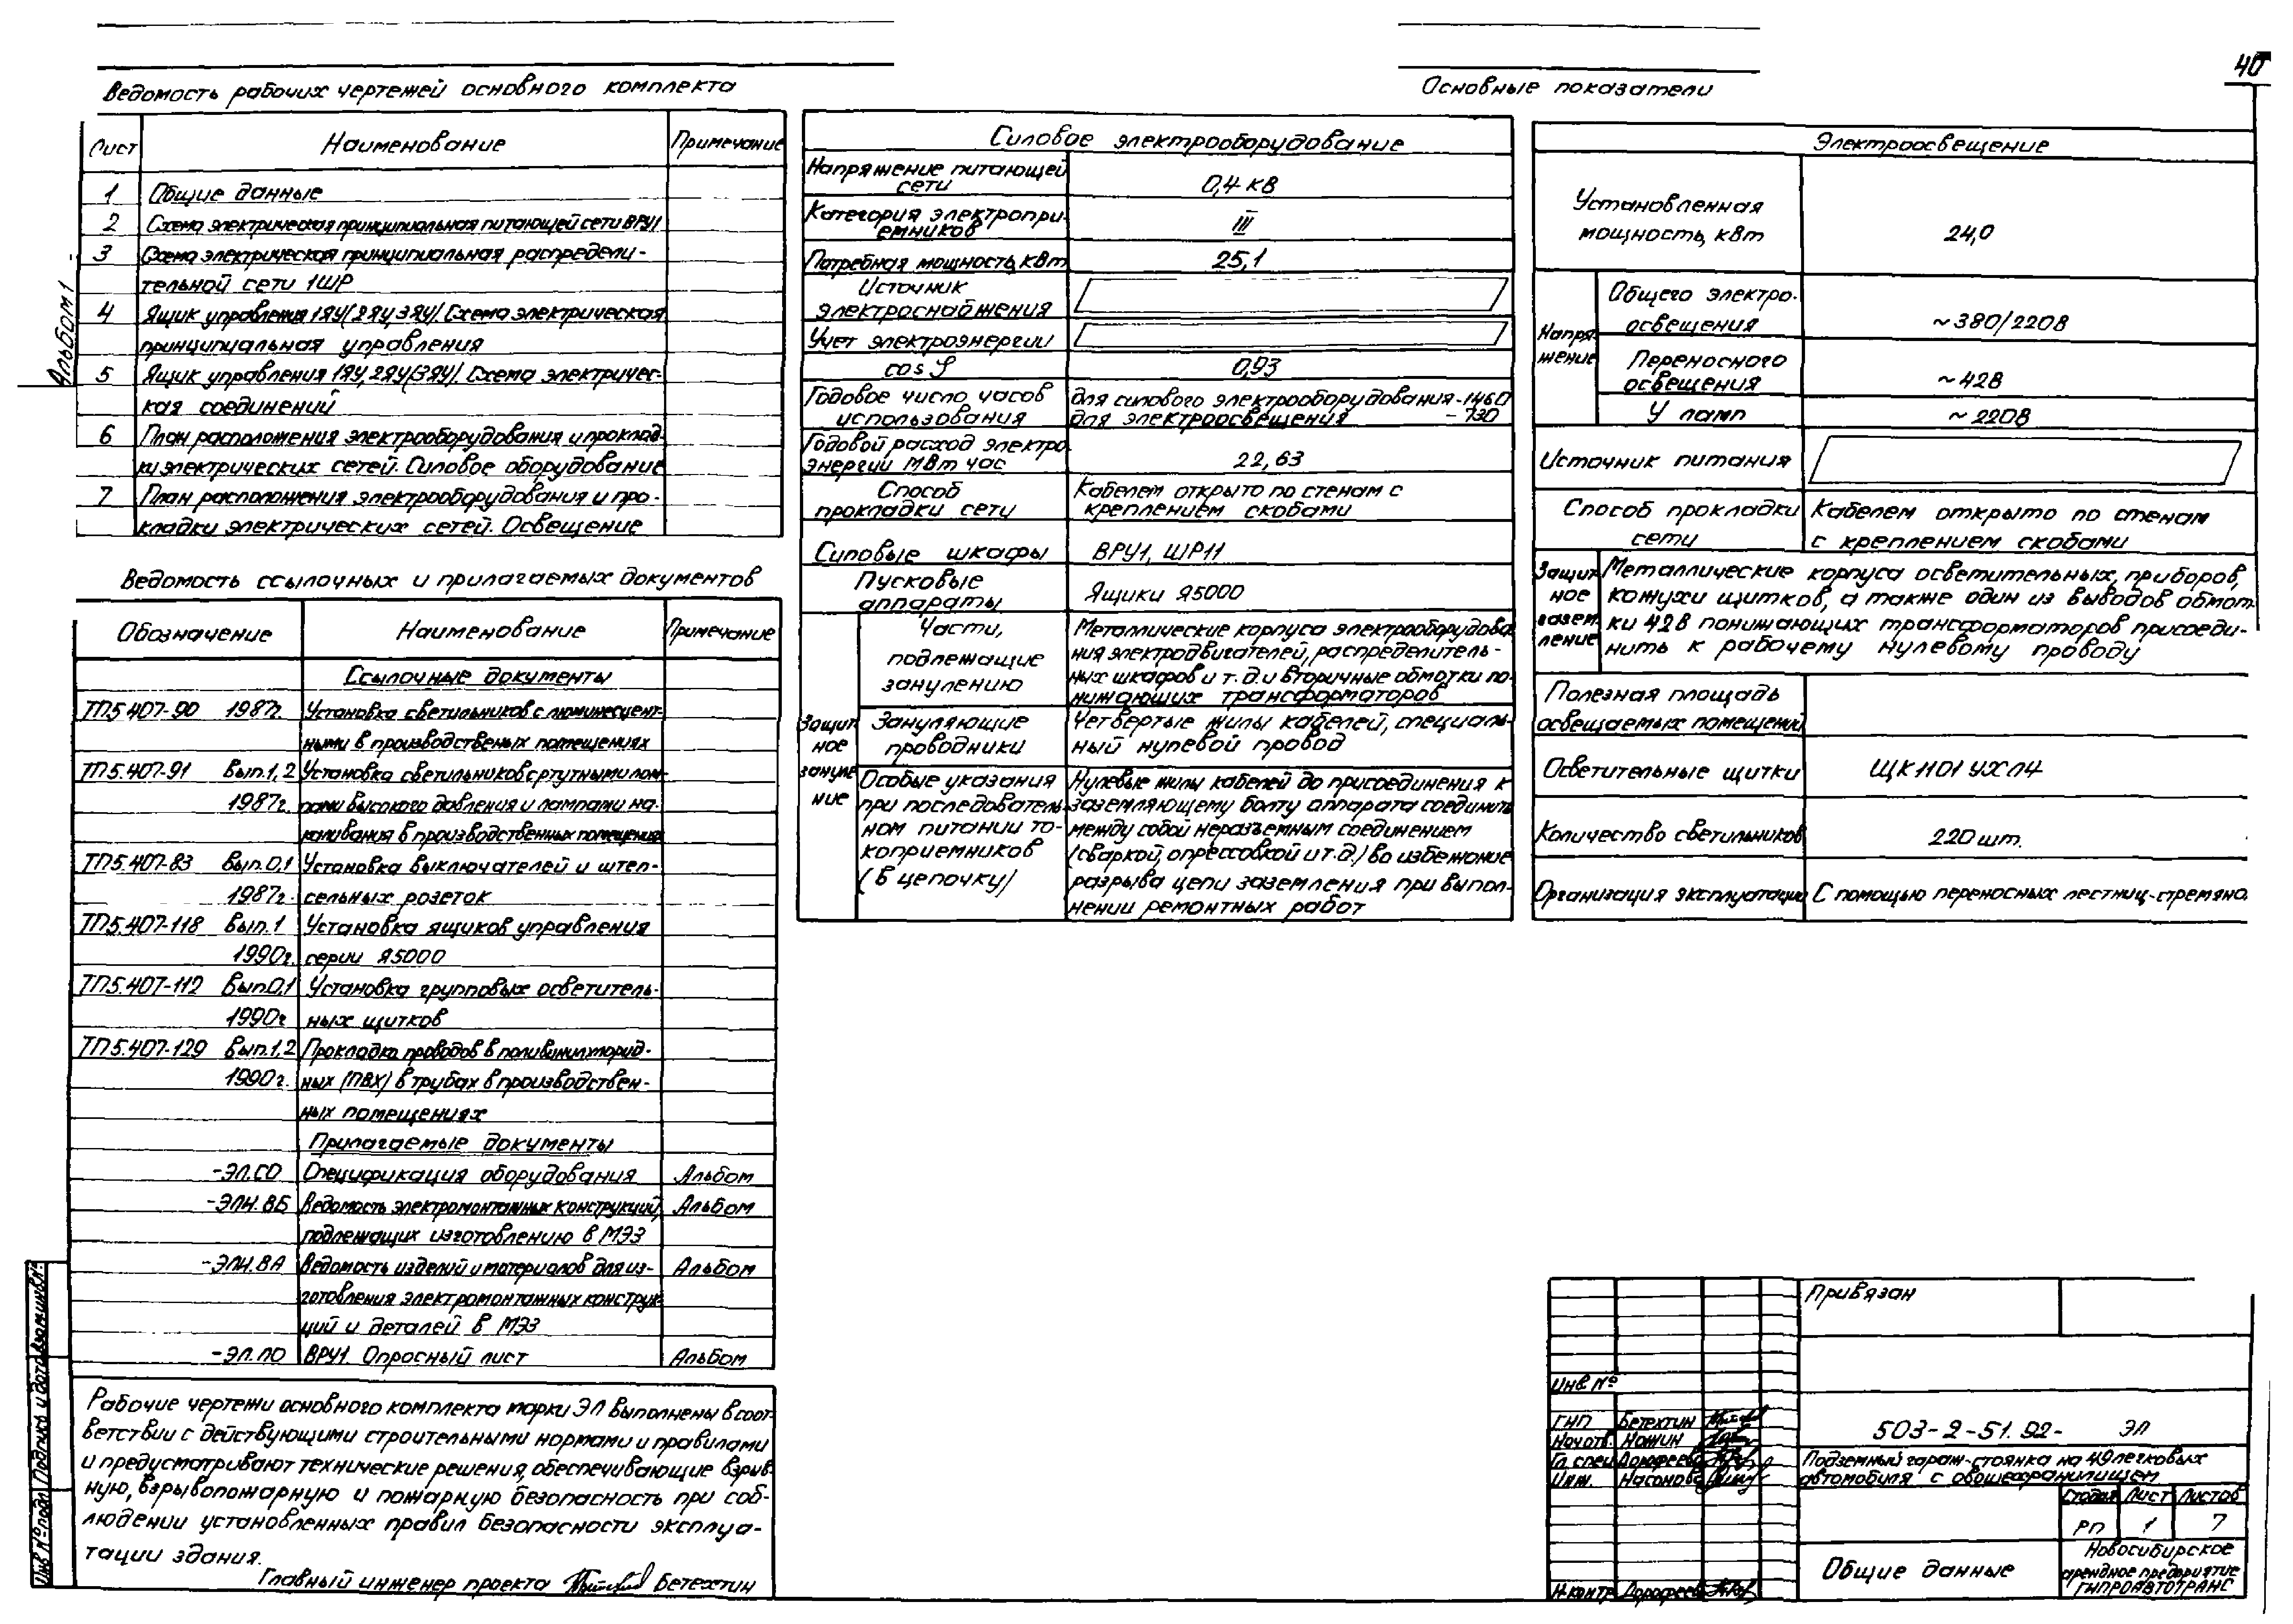 40
Альбом 1
Ведомость рабочих чертежей основного комплекта
Лист Наименование Примечание
1 Общие данные
2 Схема электрическая принципиальная питающей сети ВРУ1
3 Схема электрическая принципиальная распредели-
тельной сети 1ШР
4 Ящик управления 1ЯУ/2ЯУ,3ЯУ/. Схема электрическая
принципиальная управления
5 Ящик управления 1ЯУ,2ЯУ/3ЯУ/. Схема электричес-
кая соединений
6 План расположения электрооборудования и проклад-
ки электрических сетей. Силовое оборудование
7 План расположения электрооборудования и про-
кладки электрических сетей. Освещение
Ведомость ссылочных и прилагаемых документов
Обозначение Наименование Примечание
Ссылочные документы
ТП5.407-90 1987г. Установка светильников с люминесцент-
ными в производственых помещениях
ТП5.407-91 Вып.1,2 Установка светильников с ртутными лам-
1987г. пами высокого давления и лампами на-
каливания в производственных помещениях
ТП5.407-83 Вып.0,1 Установка выключателей и штеп-
1987г. сельных розеток
ТП5.407-118 Вып.1 Установка ящиков управления
1990г. серии Я5000
ТП5.407-112 Вып.0,1 Установка групповых осветитель-
1990г ных щитков
ТП5.407-129 Вып.1,2 Прокладка проводов в поливинилхлорид-
1990г. ных (ПВХ) в трубах в производствен-
ных помещениях
Прилагаемые документы
-ЭЛ.СО Спецификация оборудования Альбом
-ЭЛИ.ВБ Ведомость электромонтажных конструкций, Альбом
подлежащих изготовлению в МЭЗ
-ЭЛИ.ВА Ведомость изделий и материалов для из- Альбом
готовления электромонтажных конструк-
ций и деталей в МЭЗ
-ЭЛ.ЛО ВРУ1. Опросный лист Альбом
Рабочие чертежи основного комплекта марки ЭЛ выполнены в соот-
ветствии с действующими строительными нормами и правилами
и предусматривают технические решения, обеспечивающие взрыв-
ную, взрывопожарную и пожарную безопасность при соб-
людении установленных правил безопасности эксплуа-
тации здания.
Главный инженер проекта Бетехтин
Инв № подл Подпись и дата Взам.инв.№
Основные показатели
Силовое электрооборудование
Напряжение питающей
сети 0,4 кВ
Категория электропри-
емников III
Потребная мощность, кВт 25,1
Источник
электроснабжения
Учет электроэнергии
cos φ 0,93
Годовое число часов для силового электрооборудования - 1460
использования для электроосвещения - 730
Годовой расход электро-
энергии МВт час 22,63
Способ Кабелем открыто по стенам с
прокладки сети креплением скобами
Силовые шкафы ВРУ1, ШР11
Пусковые
аппараты Ящики Я5000
Защит-
ное
зануле-
ние
Части,
подлежащие
занулению
Металлические корпуса электрооборудова-
ния электродвигателей, распределитель-
ных шкафов и т.д. и вторичные обмотки по-
нижающих трансформаторов
Зануляющие
проводники
Четвертые жилы кабелей, специаль-
ный нулевой провод
Особые указания
при последователь-
ном питании то-
коприемников
(в цепочку)
Нулевые жилы кабелей до присоединения к
заземляющему болту аппарата соединить
между собой неразъемным соединением
(сваркой, опрессовкой и т.д.) во избежание
разрыва цепи заземления при выпол-
нении ремонтных работ
Электроосвещение
Установленная
мощность, кВт 24,0
Напря-
жение
Общего электро-
освещения ~380/220В
Переносного
освещения ~42В
У ламп ~220В
Источник питания
Способ прокладки Кабелем открыто по стенам
сети с креплением скобами
Защит-
ное
зазем-
ление
Металлические корпуса осветительных, приборов,
кожухи щитков, а также один из выводов обмот-
ки 42В понижающих трансформаторов присоеди-
нить к рабочему нулевому проводу
Полезная площадь
освещаемых помещений
Осветительные щитки ЩК1101 УХЛ4
Количество светильников 220 шт.
Организация эксплуатации С помощью переносных лестниц-стремяно.
Привязан
Инв №
ГИП Бетехтин
Нач.отд. Нажин
Гл. спец Дорофеев
Инж. Насонова
Н.контр Дорофеев
503-2-51.92- ЭЛ
Подземный гараж-стоянка на 49 легковых
автомобиля с овощехранилищем
Стадия Лист Листов
РП 1 7
Общие данные
Новосибирское
арендное предприятие
ГИПРОАВТОТРАНС